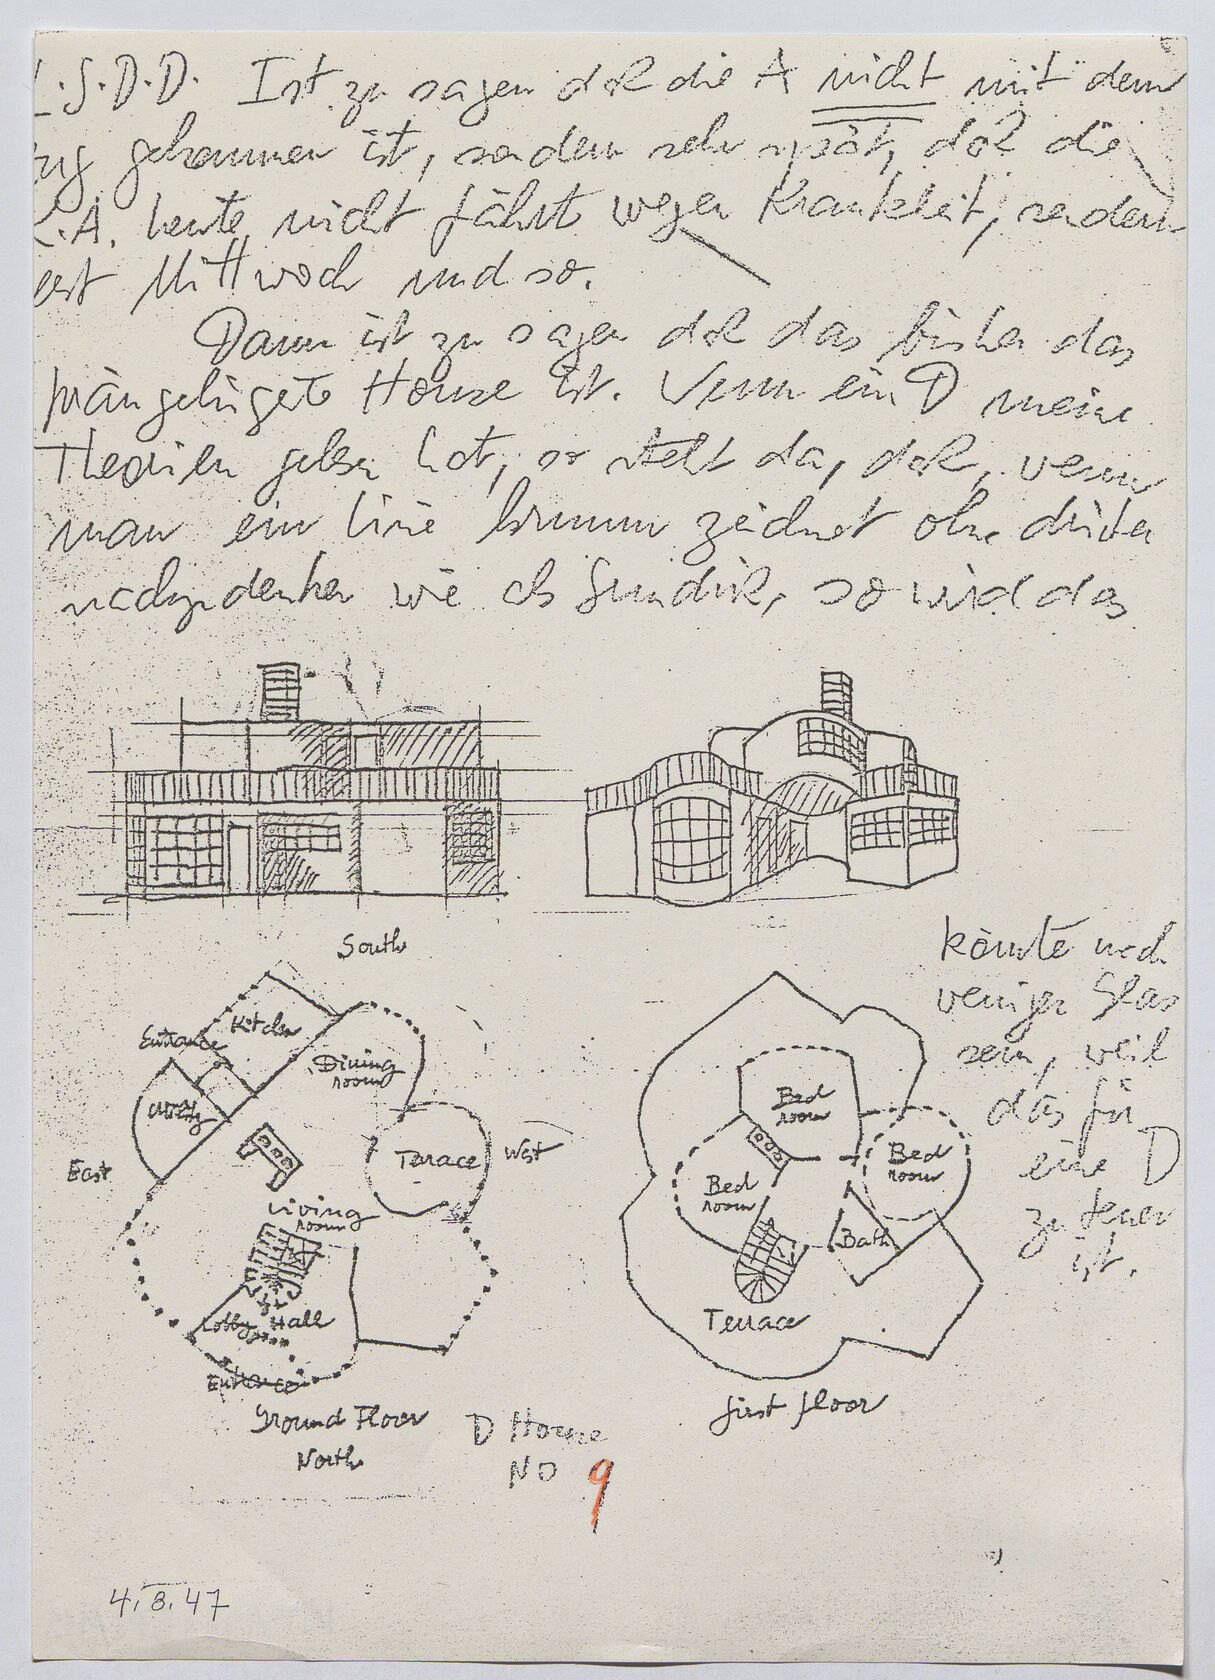 L.S.D.D. Ist zu sagen daß die A nicht mit dem
Zug gekommen ist, sondern sehr spät, daß die
A. heute nicht fährt wegen Krankheit, sondern
erst Mittwoch und so.
Dann ist zu sagen daß das bisher das
House ist. Wenn ein D meine
Theorien gelesen hat, so steht da, daß, wenn
man ein Linie krumm zeichnet ohne drüber
nachzudenken wie als Grundriß, so wird das
South
könnte noch
weniger Glas
sein, weil
das für
eine D
zu teuer
ist.
Entrance
Kitchen
Dining
room
Utility
East
Terrace
West
Living
room
Lobby Hall
Entrance
Ground Floor
North
Bed
room
Bed
room
Bed
room
Bath
Terrace
first floor
D House
NO 9
4.8.47